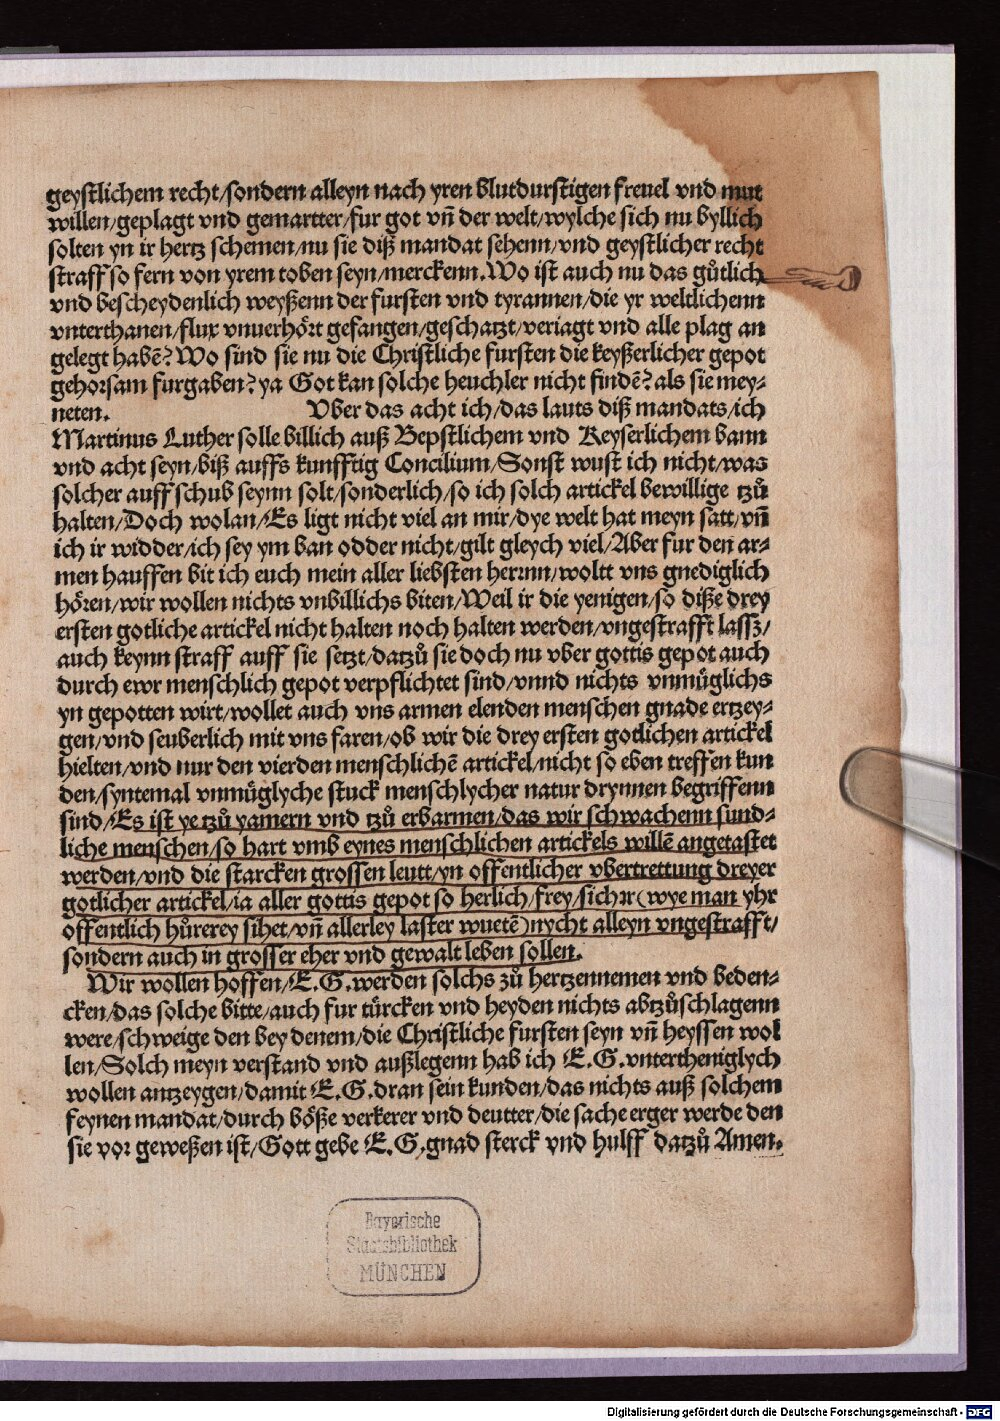 geystlichem recht/sondern alleyn nach yren blutdurstigen freuel vnd mut
willen/geplagt vnd gemartter/fur got vñ der welt/wylche sich nu byllich
solten yn ir hertz schemen/nu sie diß mandat sehenn/vnd geystlicher recht
straff so fern von yrem toben seyn/merckenn. Wo ist auch nu das gůtlich
vnd bescheydenlich weyßenn der fursten vnd tyrannen/die yr weltlichenn
vnterthanen/flux vnuerhört gefangen/geschatzt/veriagt vnd alle plag an
gelegt habē? Wo sind sie nu die Christliche fursten die keyßerlicher gepot
gehorsam furgaben? ya Got kan solche heuchler nicht findē? als sie mey-
neten. Vber das acht ich/das lauts diß mandats/ich
Martinus Luther solle billich auß Bepstlichem vnd Keyserlichem bann
vnd acht seyn/biß auffs kunfftig Concilium/Sonst wust ich nicht/was
solcher auffschub seynn solt/sonderlich/so ich solch artickel bewillige tzů
halten/Doch wolan/Es ligt nicht viel an mir/dye welt hat meyn satt/vñ
ich ir widder/ich sey ym ban odder nicht/gilt gleych viel/Aber fur den ar-
men hauffen bit ich euch mein aller liebsten herrnn/woltt vns gnediglich
hören/wir wollen nichts vnbillichs biten/Weil ir die yenigen/so diße drey
ersten gotliche artickel nicht halten noch halten werden/vngestrafft lassz/
auch keynn straff auff sie setzt/datzů sie doch nu vber gottis gepot auch
durch ewr menschlich gepot verpflichtet sind/vnnd nichts vnmüglichs
yn gepotten wirt/wollet auch vns armen elenden menschen gnade ertzey-
gen/vnd seuberlich mit vns faren/ob wir die drey ersten gotlichen artickel
hielten/vnd nur den vierden menschlichē artickel/nicht so eben treffen kun
den/syntemal vnmüglyche stuck menschlycher natur drynnen begriffenn
sind/Es ist ye tzů yamern vnd tzů erbarmen/das wir schwachenn sund-
liche menschen/so hart vmb eynes menschlichen artickels willē angetastet
werden/vnd die starcken grossen leutt/yn offentlicher vbertrettung dreyer
gotlicher artickel/ia aller gottis gepot so herlich/frey/sicher(wye man yhr
offentlich hůrerey sihet/vñ allerley laster wuetē)nycht alleyn vngestrafft/
sondern auch in grosser eher vnd gewalt leben sollen.
Wir wollen hoffen/E.G. werden solchs zů hertzennemen vnd beden-
cken/das solche bitte/auch fur türcken vnd heyden nichts abtzůschlagenn
were/schweige den bey denem/die Christliche fursten seyn vñ heyssen wol
len/Solch meyn verstand vnd außlegenn hab ich E.G. vntertheniglych
wollen antzeygen/damit E.G. dran sein kunden/das nichts auß solchem
feynen mandat/durch böße verkerer vnd deutter/die sache erger werde den
sie vor geweßen ist/Gott gebe E.G, gnad sterck vnd hulff datzů Amen.
Bayerische
Staatsbibliothek
MÜNCHEN
Digitalisierung gefördert durch die Deutsche Forschungsgemeinschaft - DFG